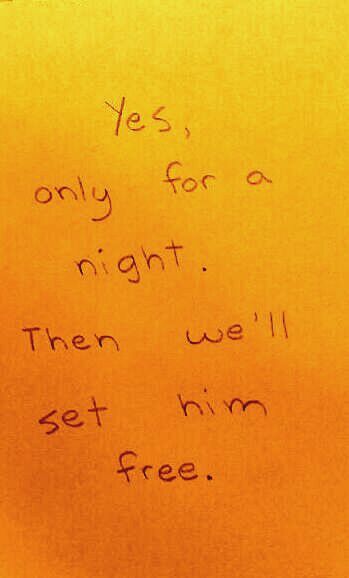 Yes,
only for a
night.
Then we'll
set him
free.